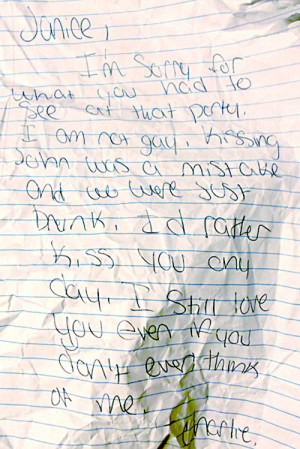 Janice,
I'm sorry for
what you had to
see at that party.
I am not gay, kissing
John was a mistake
and we were just
Drunk. I'd rather
kiss you any
day. I still love
you even if you
don't even think
of me.
Charlie.